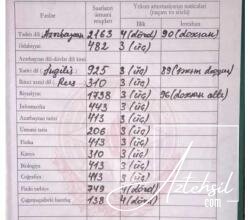 Fənlər
Saatların ümumi miqdarı
Yekun attestasiyanın nəticələri (rəqəm və sözlə)
illik
imtahan
Tədris dili Azərbaycan 2163 4(dörd) 90(doxsan)
Ədəbiyyat 482 3 (üç)
Azərbaycan dili-dövlət dili kimi
Xarici dil İngilis 925 3 (üç) 89
İkinci xarici dil Rus 340 3 (üç)
Riyaziyyat 1938 3 (üç) 96(doxsan altı)
İnformatika 443 3 (üç)
Azərbaycan tarixi 413 3 (üç)
Ümumi tarix 206 3 (üç)
Fizika 413 3 (üç)
Kimya 310 3 (üç)
Biologiya 413 3 (üç)
Coğrafiya 413 3 (üç)
Fiziki tərbiyə 749 4(dörd)
Çağırışaqədərki hazırlıq 138 4(dörd)
Aztehsil
.com